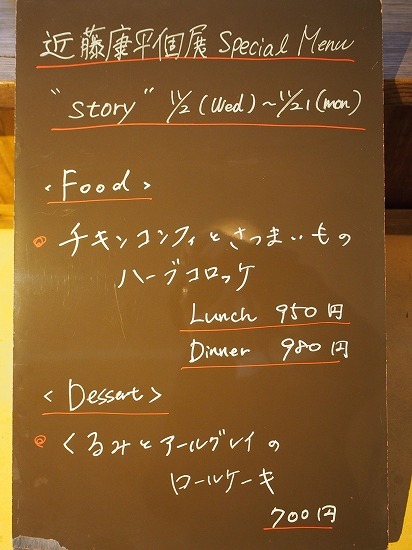 近藤康平個展 Special Menu
"Story" 11/2(Wed)~11/21(mon)
<Food>
チキンコンフィとさつまいもの
ハーブコロッケ
Lunch 950円
Dinner 980円
<Dessert>
くるみとアールグレイの
ロールケーキ
700円